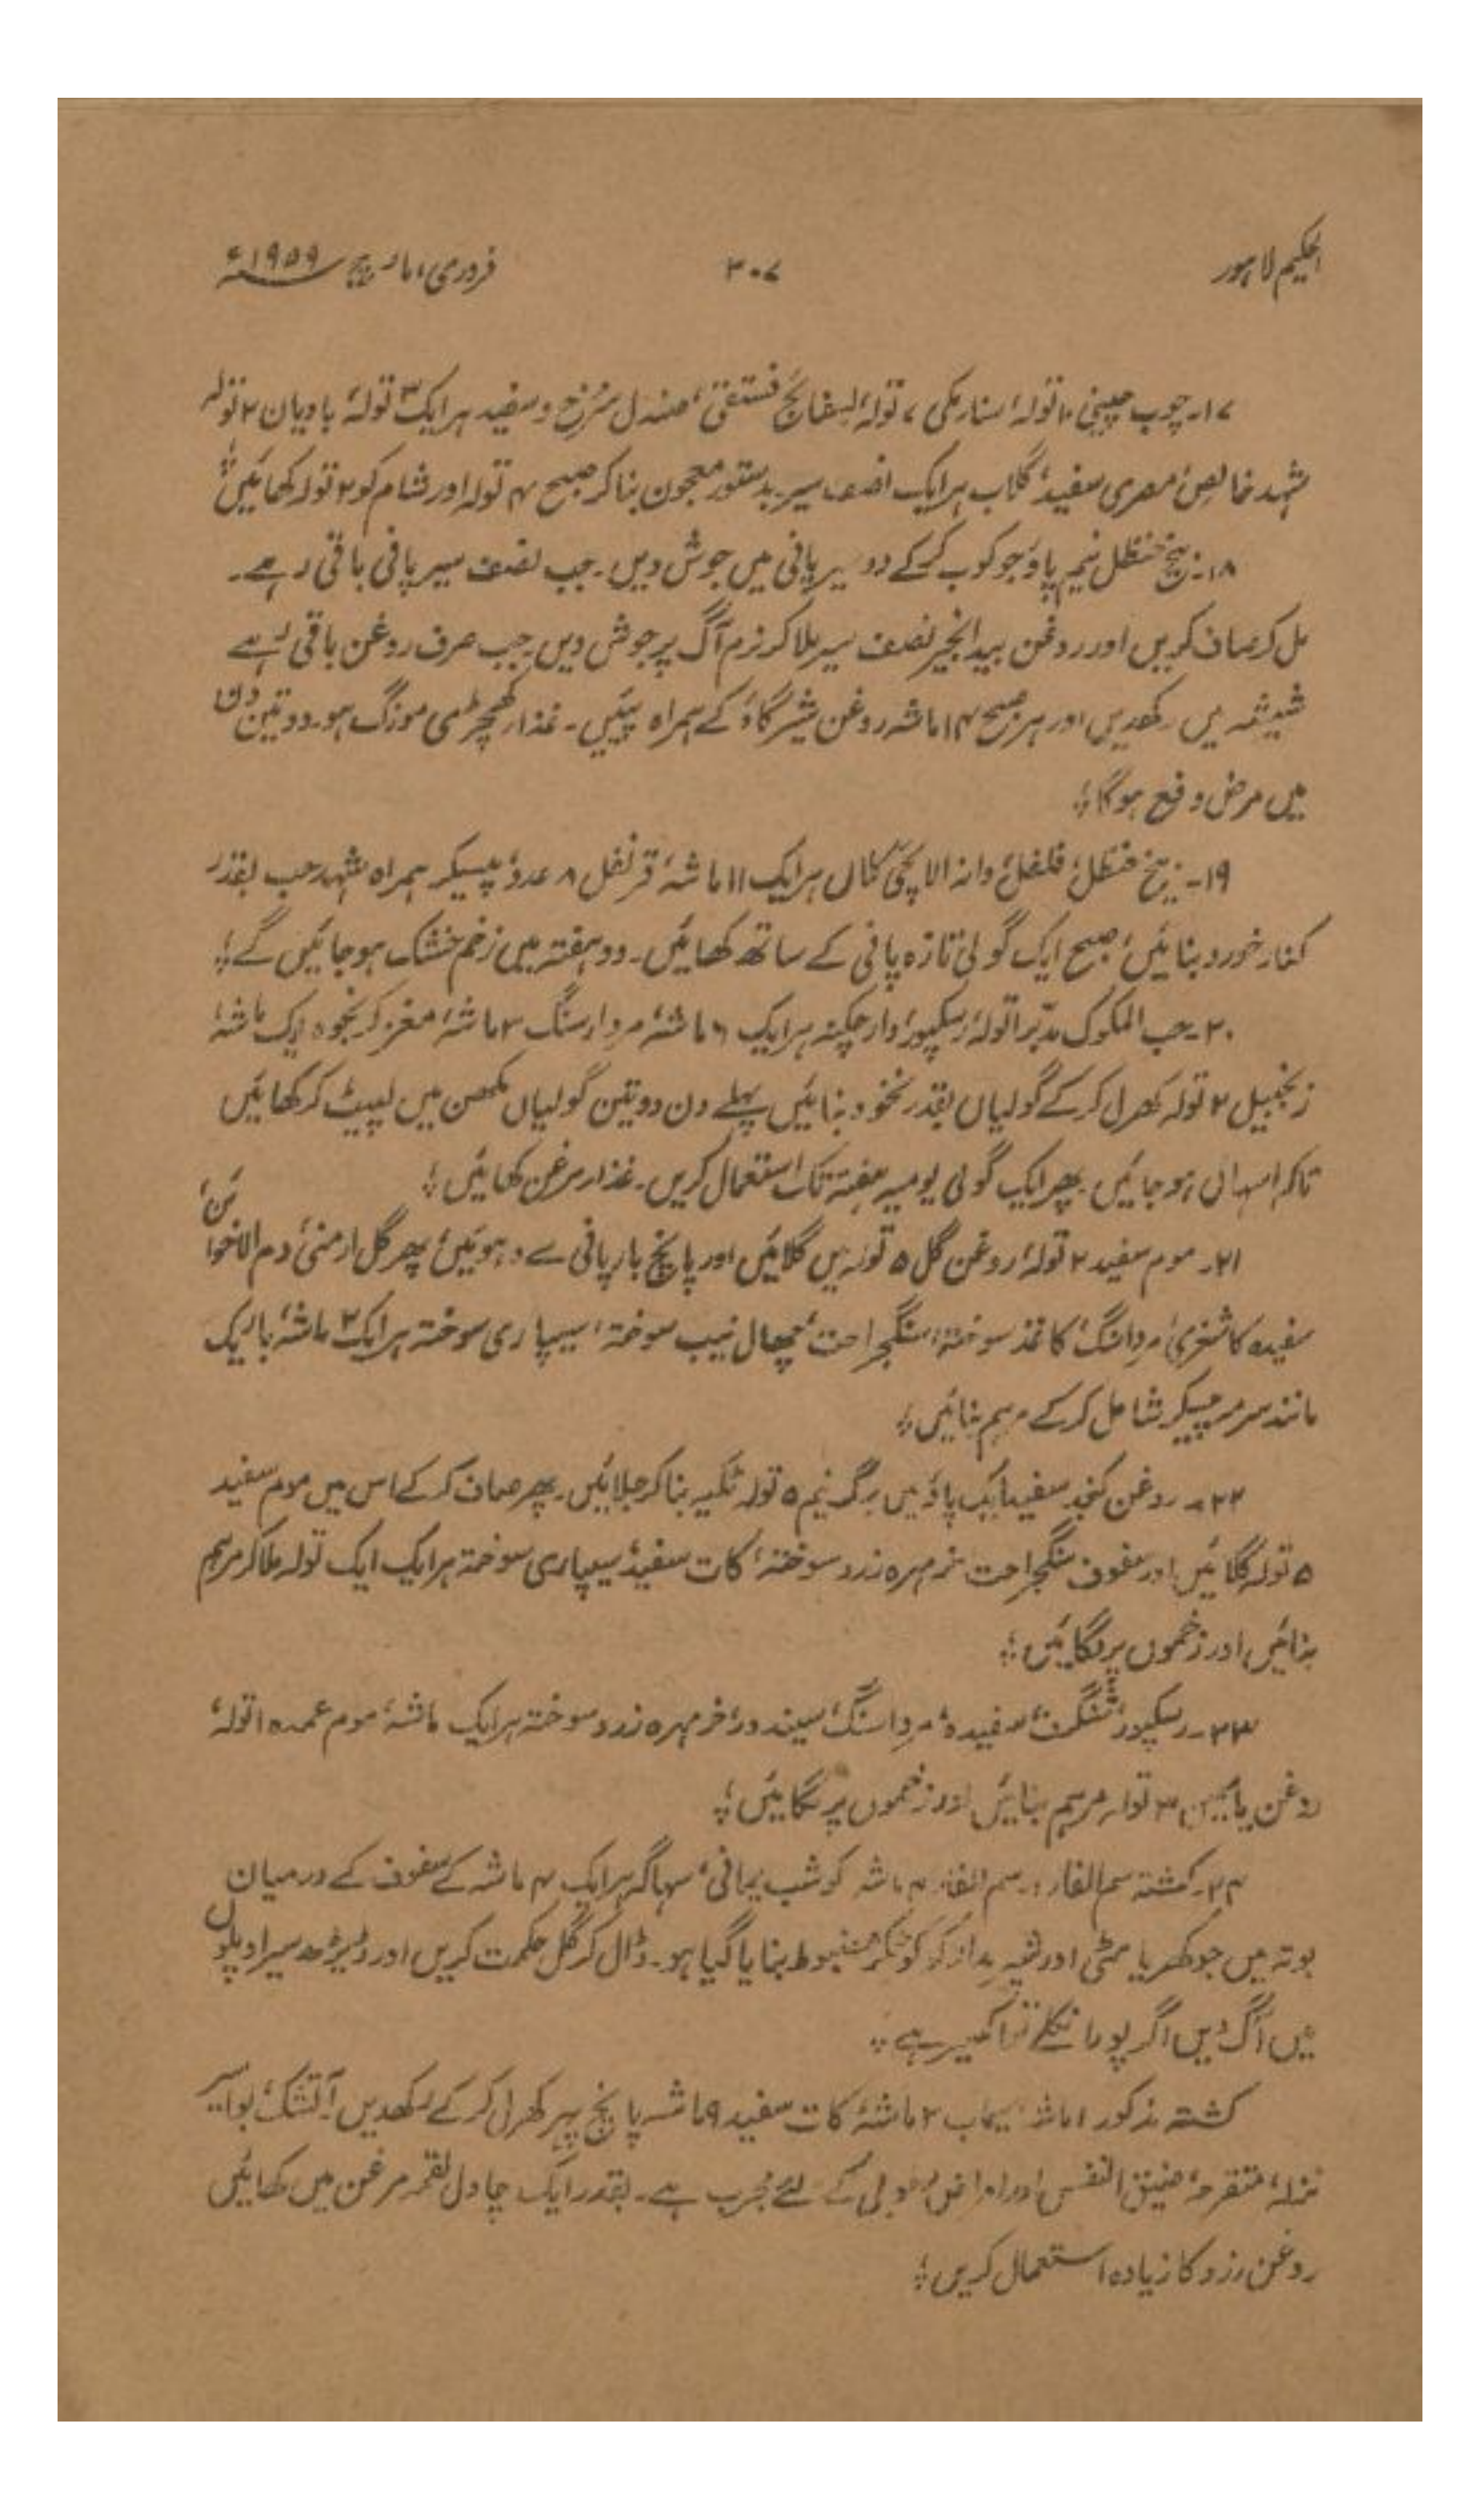 الحکیم لاہور
۳۰۷
فروری، مارچ ۱۹۵۹ء
۱۷۔ چوب چینی ۱۰ تولہ، سنار مکی ۷ تولہ، بسفائج فستقی، صندل سُرخ و سفید ہر ایک ۳ تولہ، بادیان ۲ تولہ
شہد خالص، مصری سفید، گلاب ہر ایک نصف سیر بدستور معجون بنا کر صبح ۴ تولہ اور شام کو ۲ تولہ کھائیں؛
۱۸۔ بیخ حنظل نیم پاؤ جوکوب کرکے دو سیر پانی میں جوش دیں۔ جب نصف سیر پانی باقی رہے۔
مل کر صاف کریں اور روغن بید انجیر نصف سیر ملا کر نرم آگ پر جوش دیں۔ جب صرف روغن باقی رہے
شیشہ میں رکھدیں اور ہر صبح ۱۴ ماشہ روغن شیر گاؤ کے ہمراہ پئیں۔ غذار کھچڑی مونگ ہو۔ دو تین دن
میں مرض دفع ہوگا؛
۱۹۔ بیخ حنظل، فلفل، دانہ الائچی کلاں ہر ایک ۱۱ ماشہ، قرنفل ۸ عدد، پیسکر ہمراہ شہد حب بقدر
کنار خورد بنائیں، صبح ایک گولی تازہ پانی کے ساتھ کھائیں۔ دو ہفتہ میں زخم خشک ہوجائیں گے؛
۲۰۔ حب الملوک مدبّر ۱ تولہ، رسکپور، دارچکنہ ہر ایک ۶ ماشہ، مردارسنگ ۳ ماشہ، مغز کرنجوہ ایک ماشہ،
زنجبیل ۲ تولہ کھرل کرکے گولیاں بقدر نخود بنائیں پہلے دن دو تین گولیاں مکھن میں لپیٹ کر کھائیں
تاکہ اسہال ہوجائیں۔ پھر ایک گولی یومیہ ہفتہ تک استعمال کریں۔ غذار مرغن کھائیں؛
۲۱۔ موم سفید ۲ تولہ، روغن گل ۵ تولہ میں گلائیں اور پانچ بار پانی سے دہوئیں، پھر گل ارمنی، دم الاخوائن،
سفیدہ کاشغری، مرداسنگ، کاغذ سوختہ، سنگجراحت، چھال نیب سوختہ، سیپاری سوختہ ہر ایک ۲ ماشہ، باریک
مانند سرمہ پیسکر شامل کرکے مرہم بنائیں؛
۲۲۔ روغن کنجد سفید ایک پاؤ میں برگ نیم ۵ تولہ ٹکیہ بنا کر جلائیں۔ پھر صاف کرکے اس میں موم سفید
۵ تولہ گلائیں اور سفوف سنگجراحت خرمہرہ زرد سوختہ، کات سفید، سیپاری سوختہ ہر ایک ایک تولہ ملا کر مرہم
بنائیں اور زخموں پر لگائیں؛
۲۳۔ رسکپور، شنگرف، سفیدہ، مرداسنگ، سیندور، خرمہرہ زرد سوختہ ہر ایک ماشہ، موم عمدہ ۱ تولہ،
روغن یاسمین ۳ تولہ مرہم بنائیں اور زخموں پر لگائیں؛
۲۴۔ کشتہ سم الفار: ۔ سم الفار ۴ ماشہ کو شب یمانی، سہاگہ ہر ایک ۴ ماشہ کے سفوف کے درمیان
بوتہ میں جو کھریا مٹی اور کو کوٹکر مضبوط بنایا گیا ہو۔ ڈال کر گل حکمت کریں اور ڈیڑھ سیر اوپلوں
میں آگ دیں اگر پورا نکلے تو اکسیر ہے؛
کشتہ مذکور ۱ ماشہ سیماب ۲ ماشہ، کات سفید ۹ ماشہ پانچ پہر کھرل کرکے رکھدیں۔ آتشک، بواسیر
نزلہ، متقرحہ، ضیق النفس اور امراض کے لئے مجرب ہے۔ بقدر ایک چاول لقمہ مرغن میں کھائیں
روغن زرد کا زیادہ استعمال کریں؛